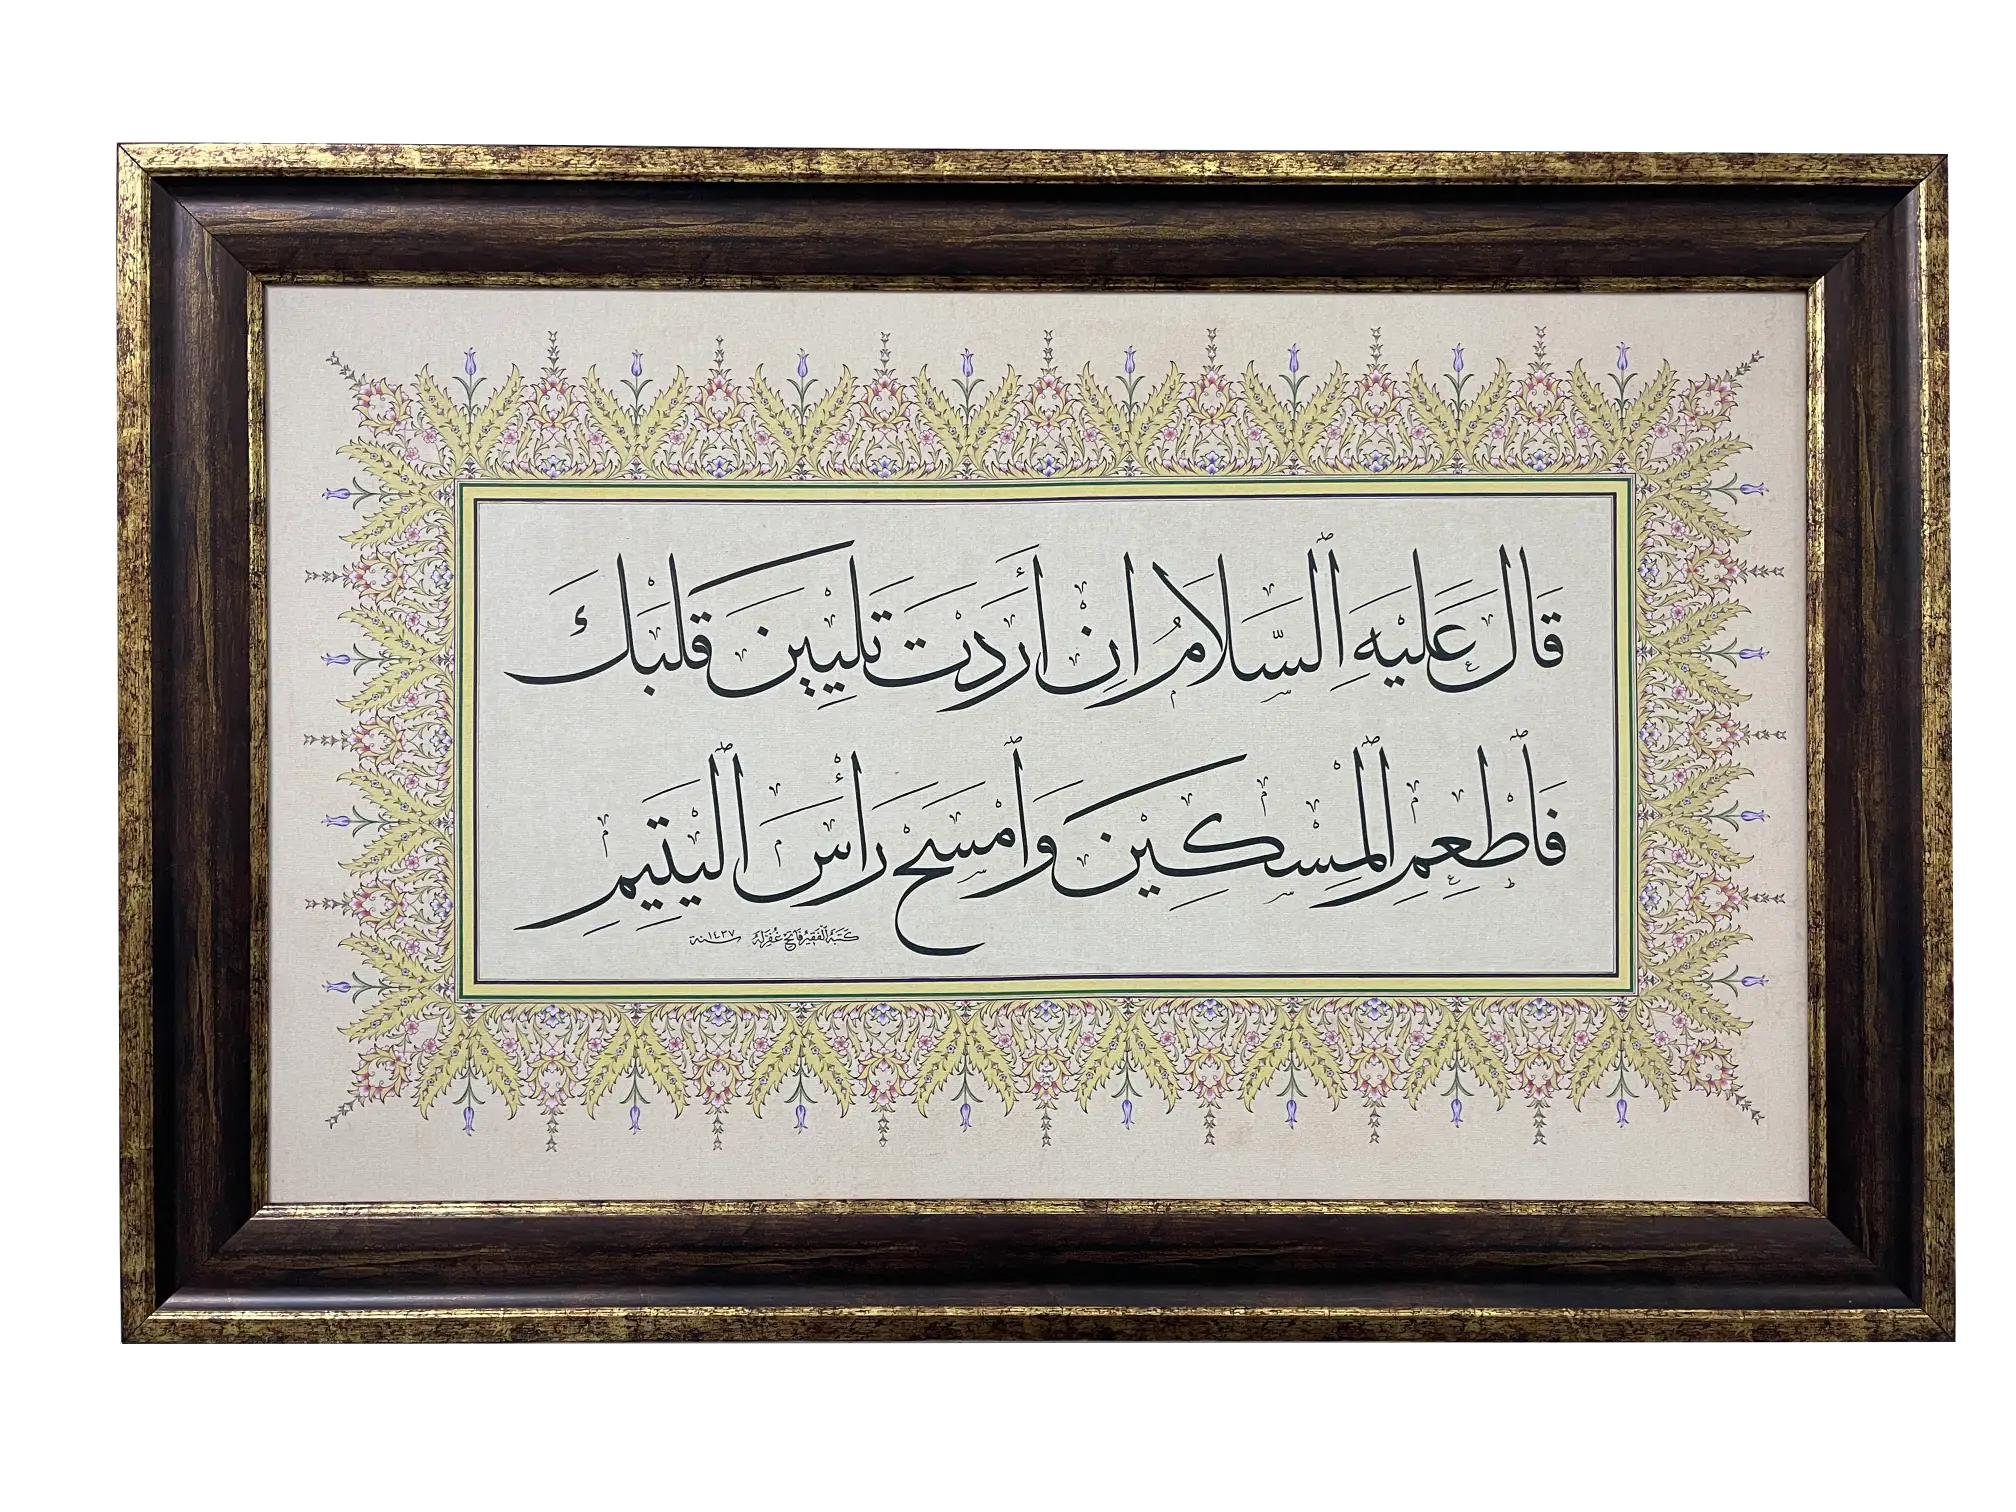 قَالَ عَلَيْهِ ٱلسَّلَامُ اِنْ أَرَدْتَ تَلْيِينَ قَلْبَكَ
فَٱطْعِمِ ٱلْمِسْكِينَ وَٱمْسَحْ رَأْسَ ٱلْيَتِيمِ
كتبه الفقير فاتح غفرله سنة ١٤٣٧